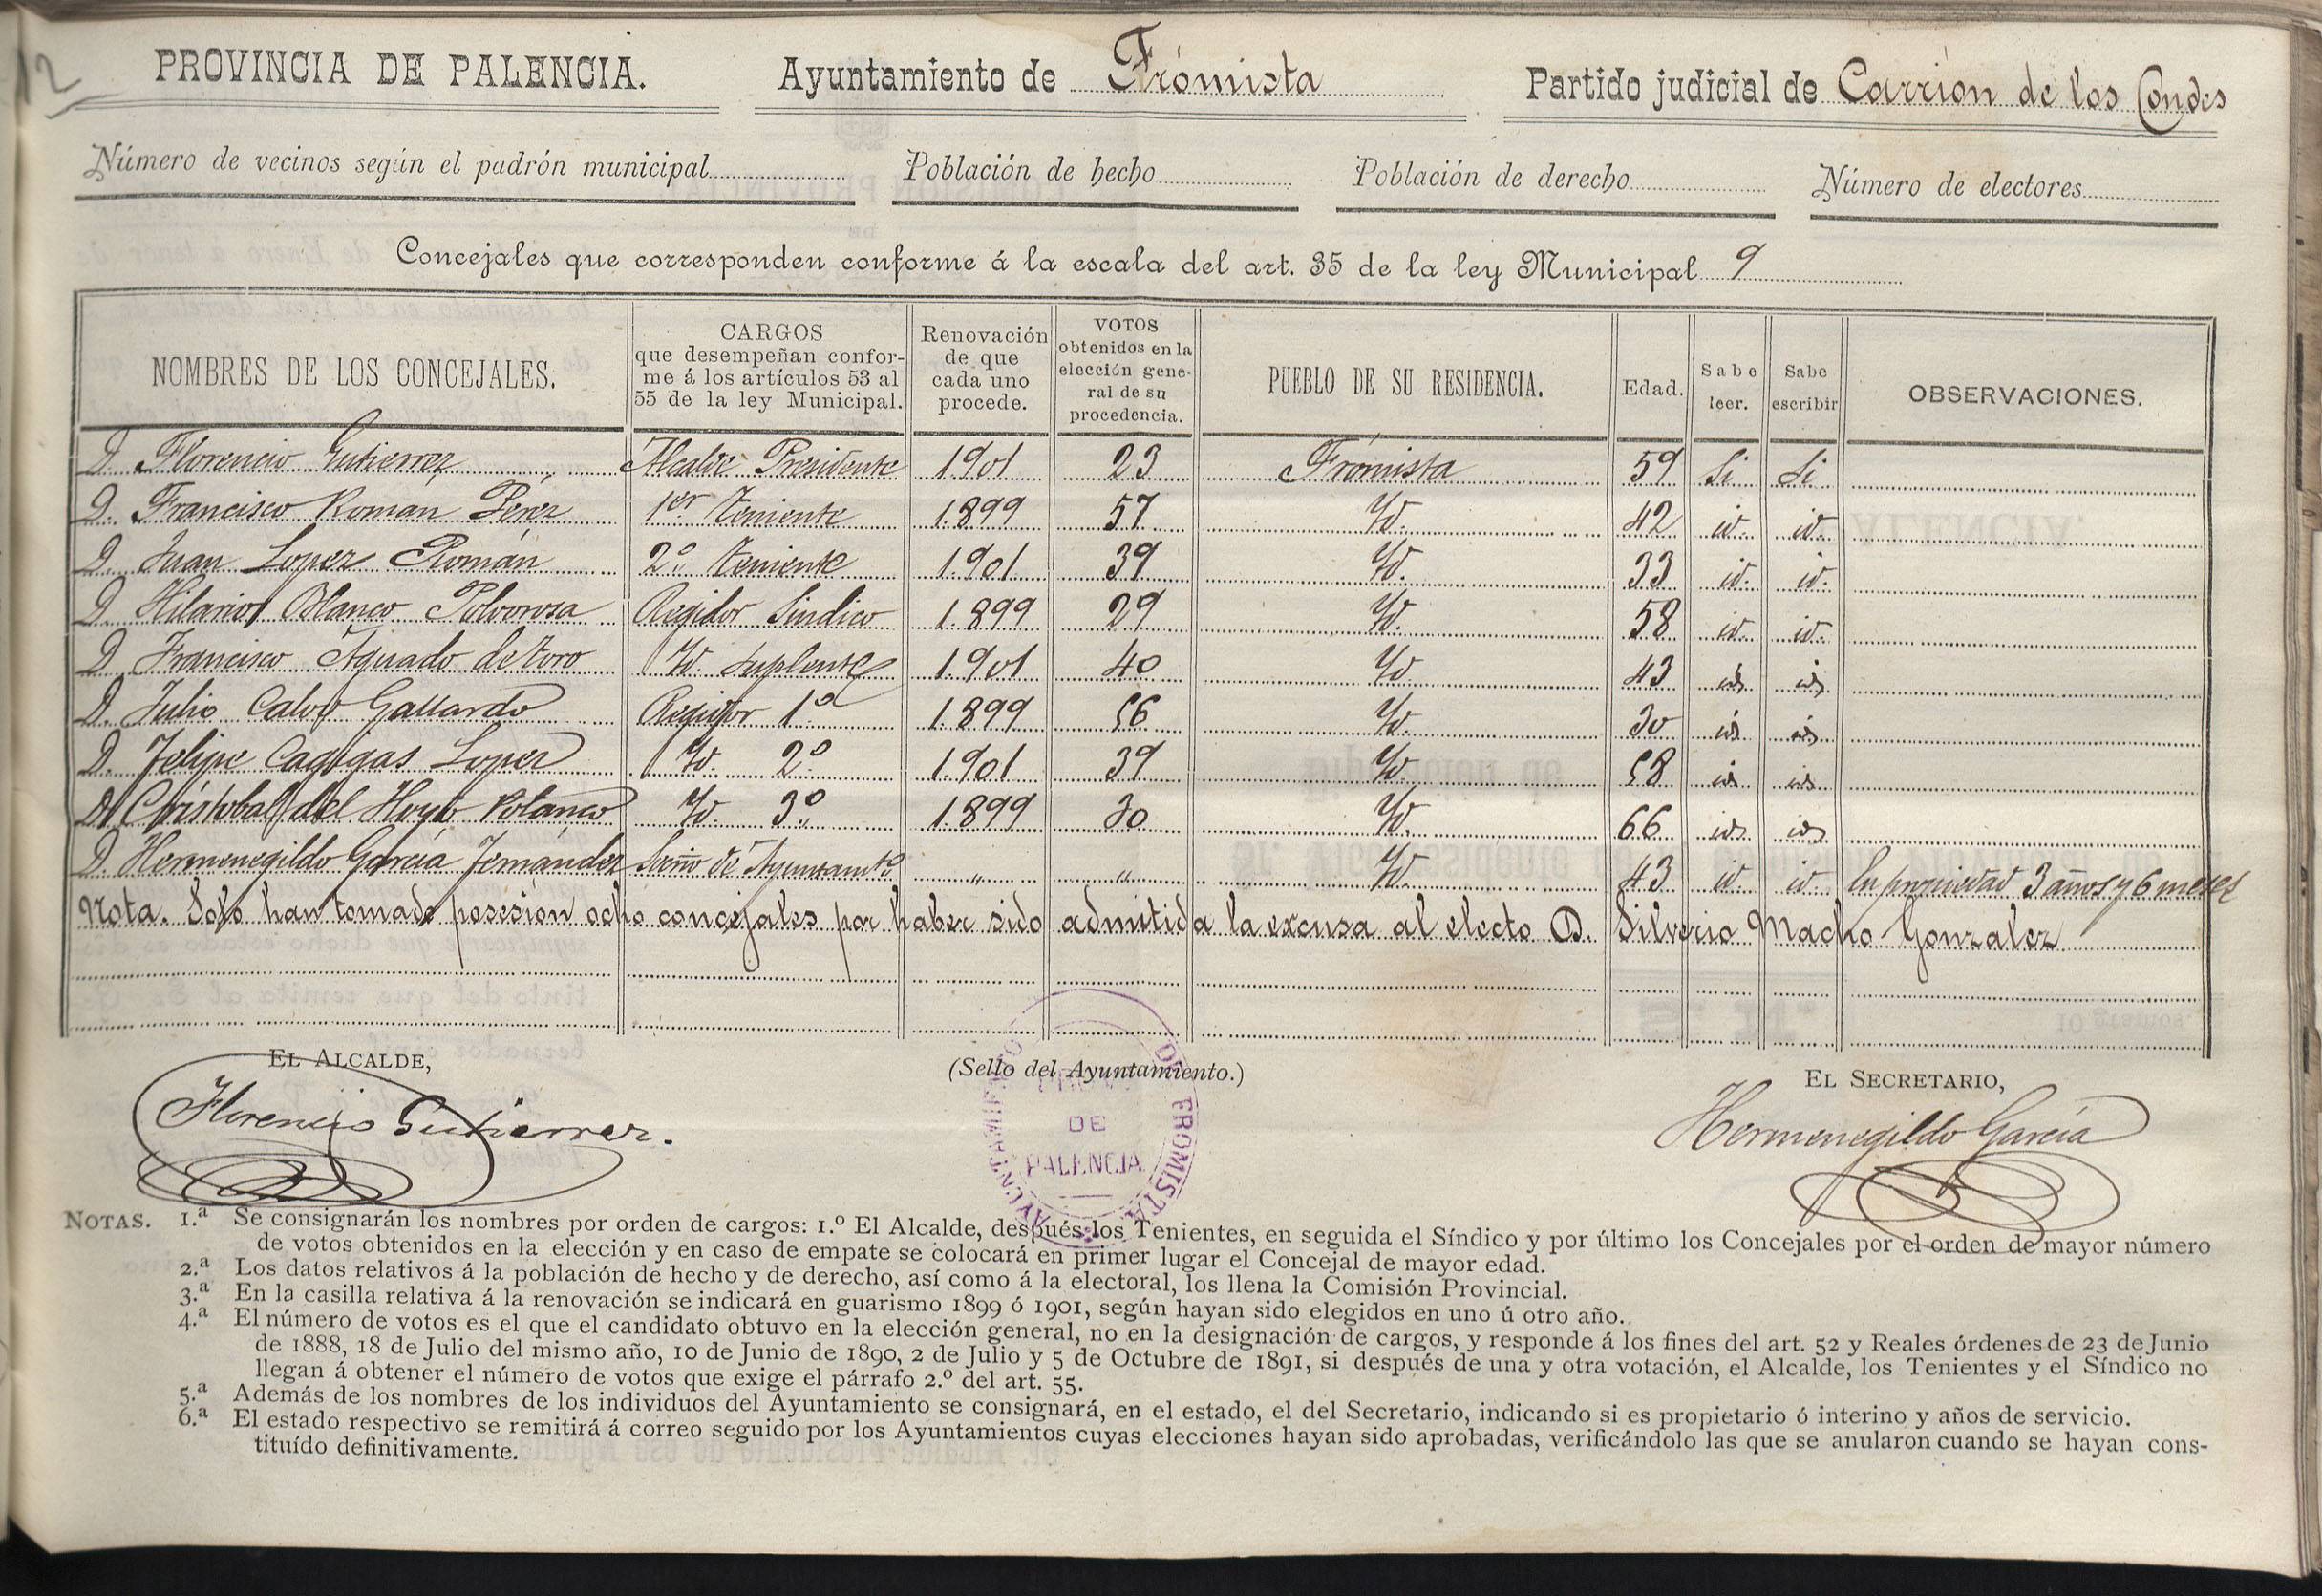 12
PROVINCIA DE PALENCIA. Ayuntamiento de Frómista Partido judicial de Carrión de los Condes
Número de vecinos según el padrón municipal Población de hecho Población de derecho Número de electores
Concejales que corresponden conforme á la escala del art. 35 de la ley Municipal 9
NOMBRES DE LOS CONCEJALES. CARGOS que desempeñan confor- me á los artículos 53 al 55 de la ley Municipal. Renovación de que cada uno procede. VOTOS obtenidos en la elección gene- ral de su procedencia. PUEBLO DE SU RESIDENCIA. Edad. Sabe leer. Sabe escribir OBSERVACIONES.
D. Florencio Gutierrez Alcalde Presidente 1901 23 Frómista 59 Si Si
D. Francisco Román Pérez 1er Teniente 1.899 57 Id. 42 id. id.
D. Juan Lopez Román 2º Teniente 1.901 39 Id. 33 id. id.
D. Hilario Blanco Polvorosa Regidor Sindico 1.899 29 Id. 58 id. id.
D. Francisco Aguado de Toro Id. suplente 1.901 40 Id. 43 id. id.
D. Julio Calvo Gallardo Regidor 1º 1.899 56 Id. 30 id. id.
D. Felipe Cagigas Lopez Id. 2º 1.901 39 Id. 58 id. id.
D. Cristobal del Hoyo Polanco Id. 3º 1.899 30 Id. 66 id. id.
D. Hermenegildo García Fernández Serio de Ayuntamto " " Id. 43 id. id. En propiedad 3 años y 6 meses
Nota. Solo han tomado posesión ocho concejales por haber sido admitida la excusa al electo D. Silverio Macho Gonzalez
EL ALCALDE, (Sello del Ayuntamiento.) EL SECRETARIO,
Florencio Gutierrez. Hermenegildo García
AYUNTAMIENTO DE FROMISTA
DE
PALENCIA
NOTAS. 1.ª Se consignarán los nombres por orden de cargos: 1.º El Alcalde, después los Tenientes, en seguida el Síndico y por último los Concejales por el orden de mayor número
de votos obtenidos en la elección y en caso de empate se colocará en primer lugar el Concejal de mayor edad.
2.ª Los datos relativos á la población de hecho y de derecho, así como á la electoral, los llena la Comisión Provincial.
3.ª En la casilla relativa á la renovación se indicará en guarismo 1899 ó 1901, según hayan sido elegidos en uno ú otro año.
4.ª El número de votos es el que el candidato obtuvo en la elección general, no en la designación de cargos, y responde á los fines del art. 52 y Reales órdenes de 23 de Junio
de 1888, 18 de Julio del mismo año, 10 de Junio de 1890, 2 de Julio y 5 de Octubre de 1891, si después de una y otra votación, el Alcalde, los Tenientes y el Síndico no
llegan á obtener el número de votos que exige el párrafo 2.º del art. 55.
5.ª Además de los nombres de los individuos del Ayuntamiento se consignará, en el estado, el del Secretario, indicando si es propietario ó interino y años de servicio.
6.ª El estado respectivo se remitirá á correo seguido por los Ayuntamientos cuyas elecciones hayan sido aprobadas, verificándolo las que se anularon cuando se hayan cons-
tituído definitivamente.